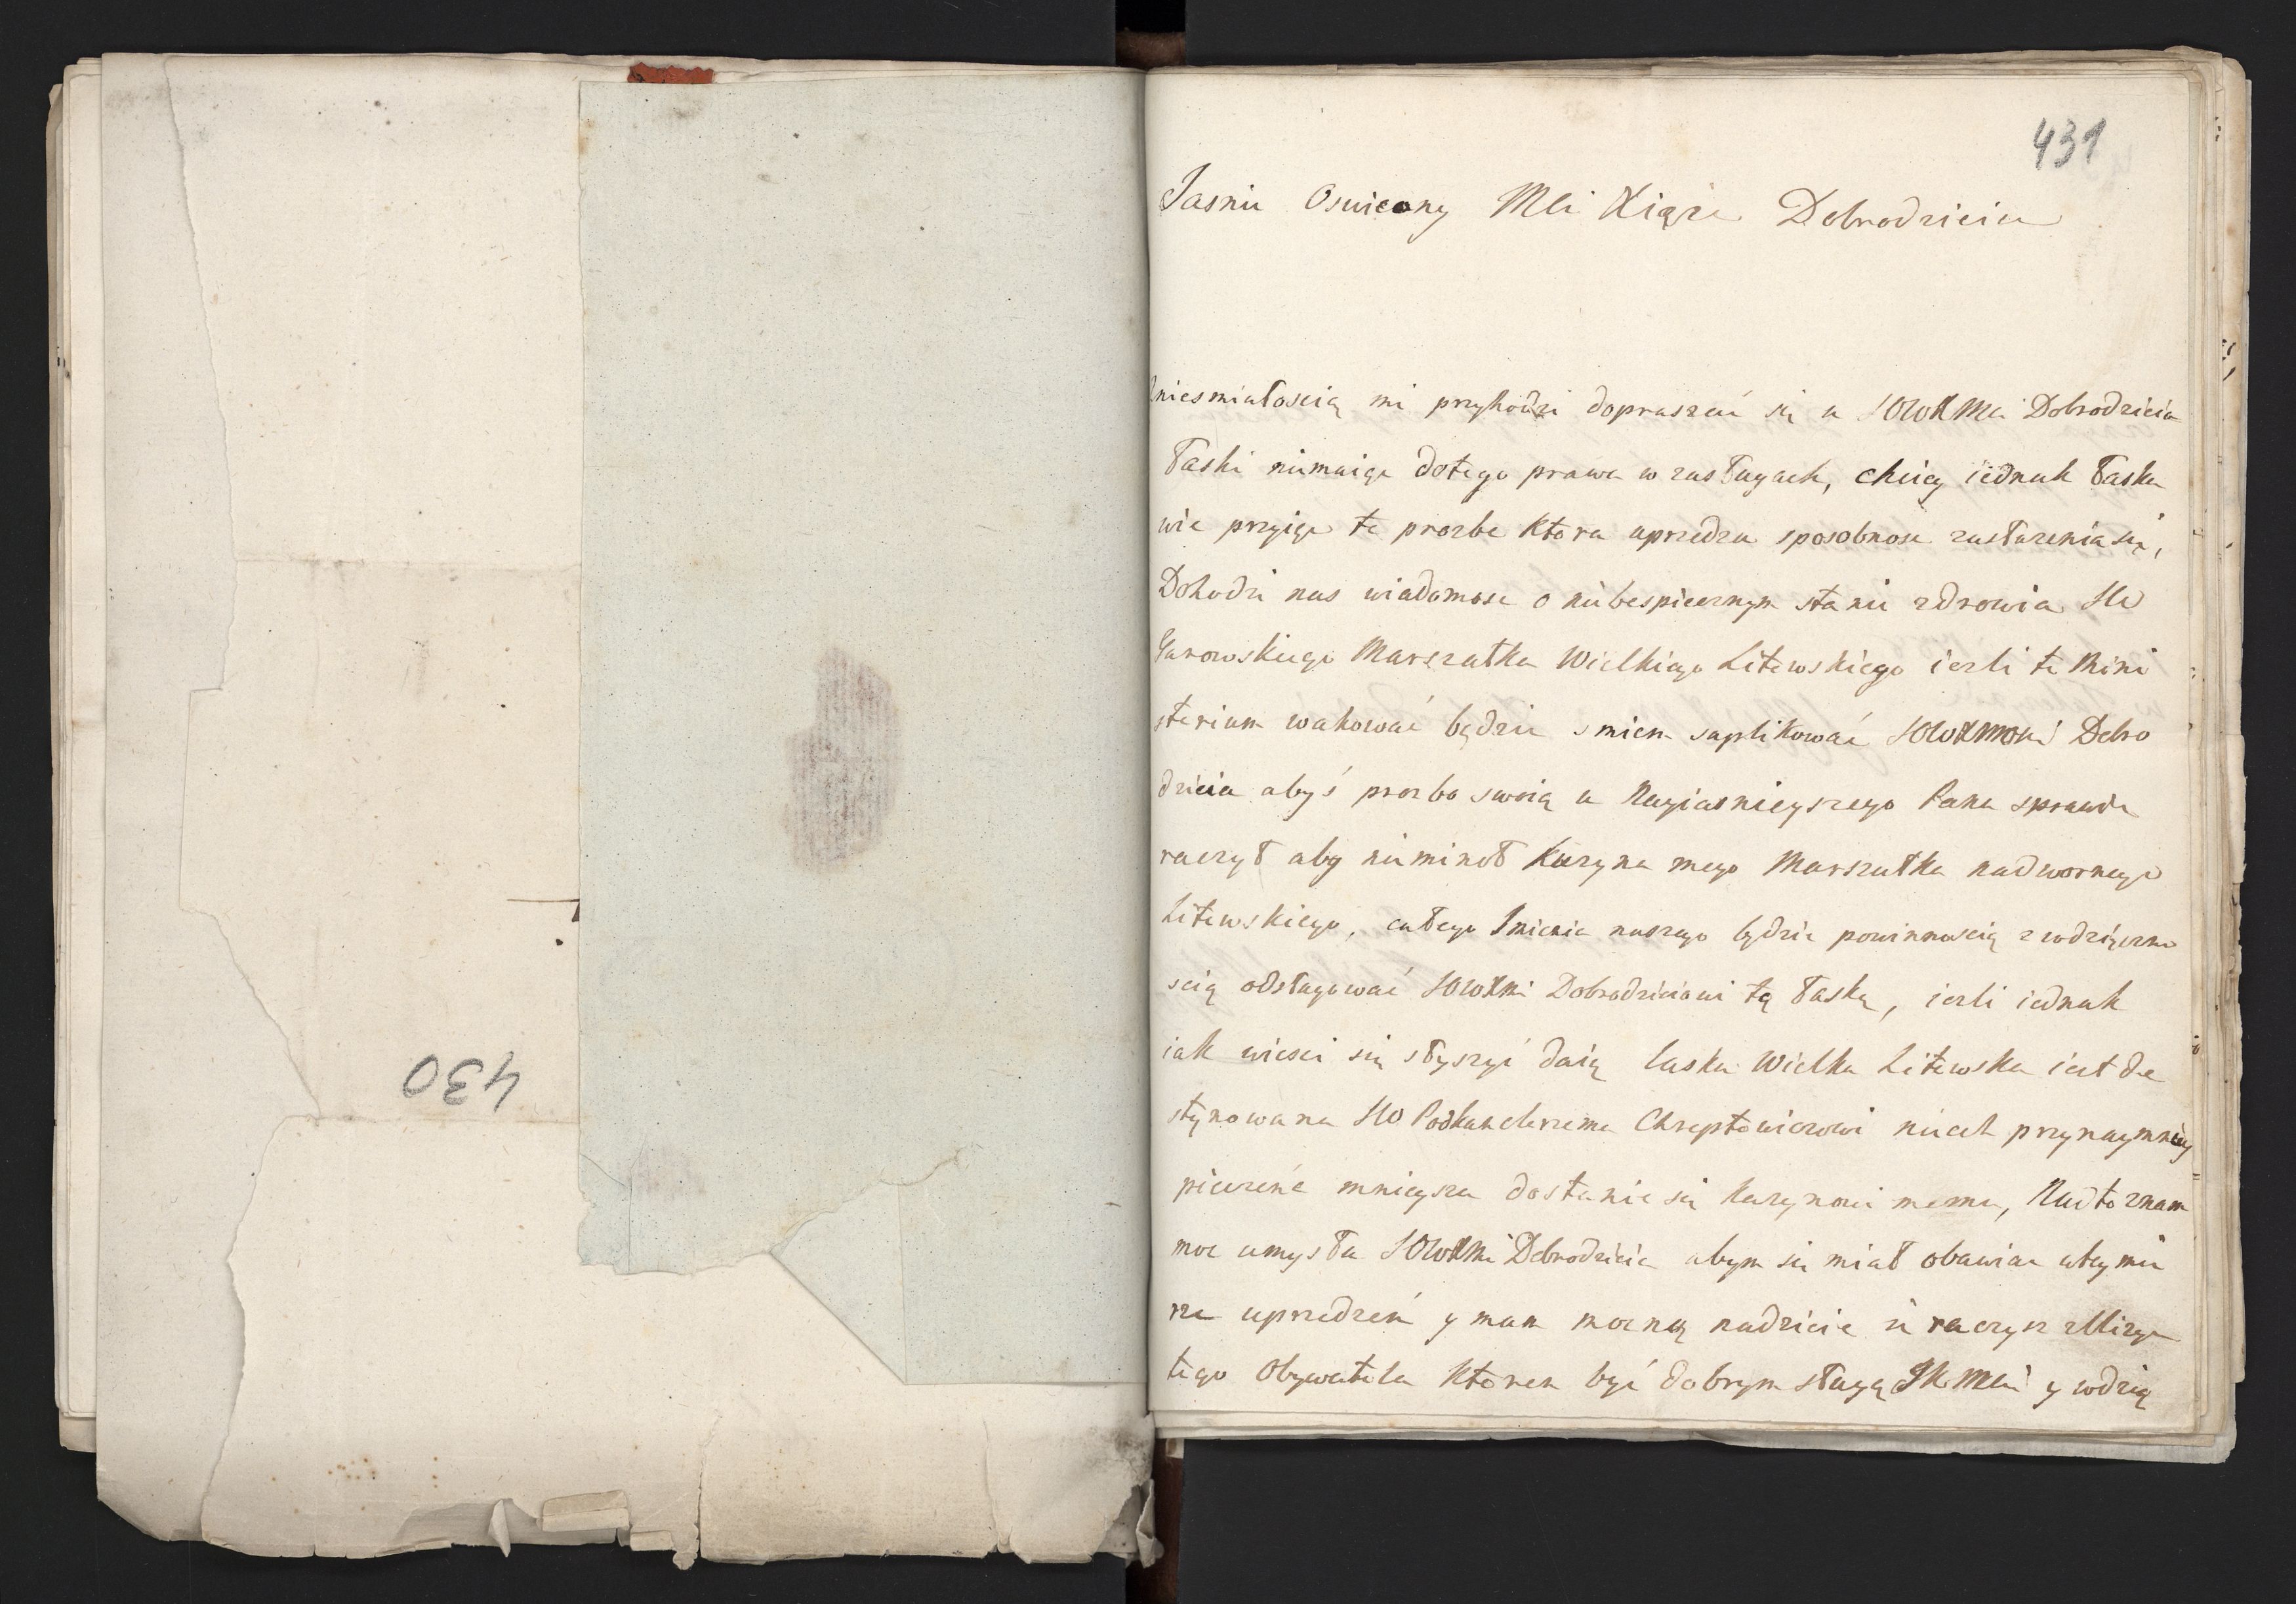 430
431
Jasnie Oswiecony Mci Xiąże Dobrodzieiu
zniesmiałoscią mi przyhodzi dopraszać się u JOWXMci Dobrodzieia
łaski niemaiąc dotego prawa w zasługach, chciey iednak łaska
wie przyiąc te prozbe ktora uprzedza sposobnosc zasłużenia się,
Dohodzi nas wiadomosc o niebespiecznym stanie zdrowia JW
Gurowskiego Marszałka Wielkiego Litewskiego iezli te Mini
sterium wakować będzie smiem suplikować JOWXMCi Dobro
dzieia abyś prozbo swoią u Nayiasnieyszego Pana sprawic
raczył aby nieminoł Kuzyna mego Marszałka nadwornego
Litewskiego, całego Imienia naszego będzie powinnoscią z wdzięczno
scią odsługować JOWXMci Dobrodzieiowi tą łaskę, iezli iednak
iak wiesci się słyszyć daią laska Wielka Litewska iest de
stynowana JW Podkanclerzemu Chreptowiczowi niech przynaymniey
pieczenć mnieysza dostanie się kuzynowi memu, Nadto znam
moc umysłu JOWXMci Dobrodzieia abym się miał obawiac w tey mie
rze uprzedzeń y mam mocną nadzieie że raczysz zbliżyc
tego Obywatela ktoren być dobrym sługą JKMCi y wdzię